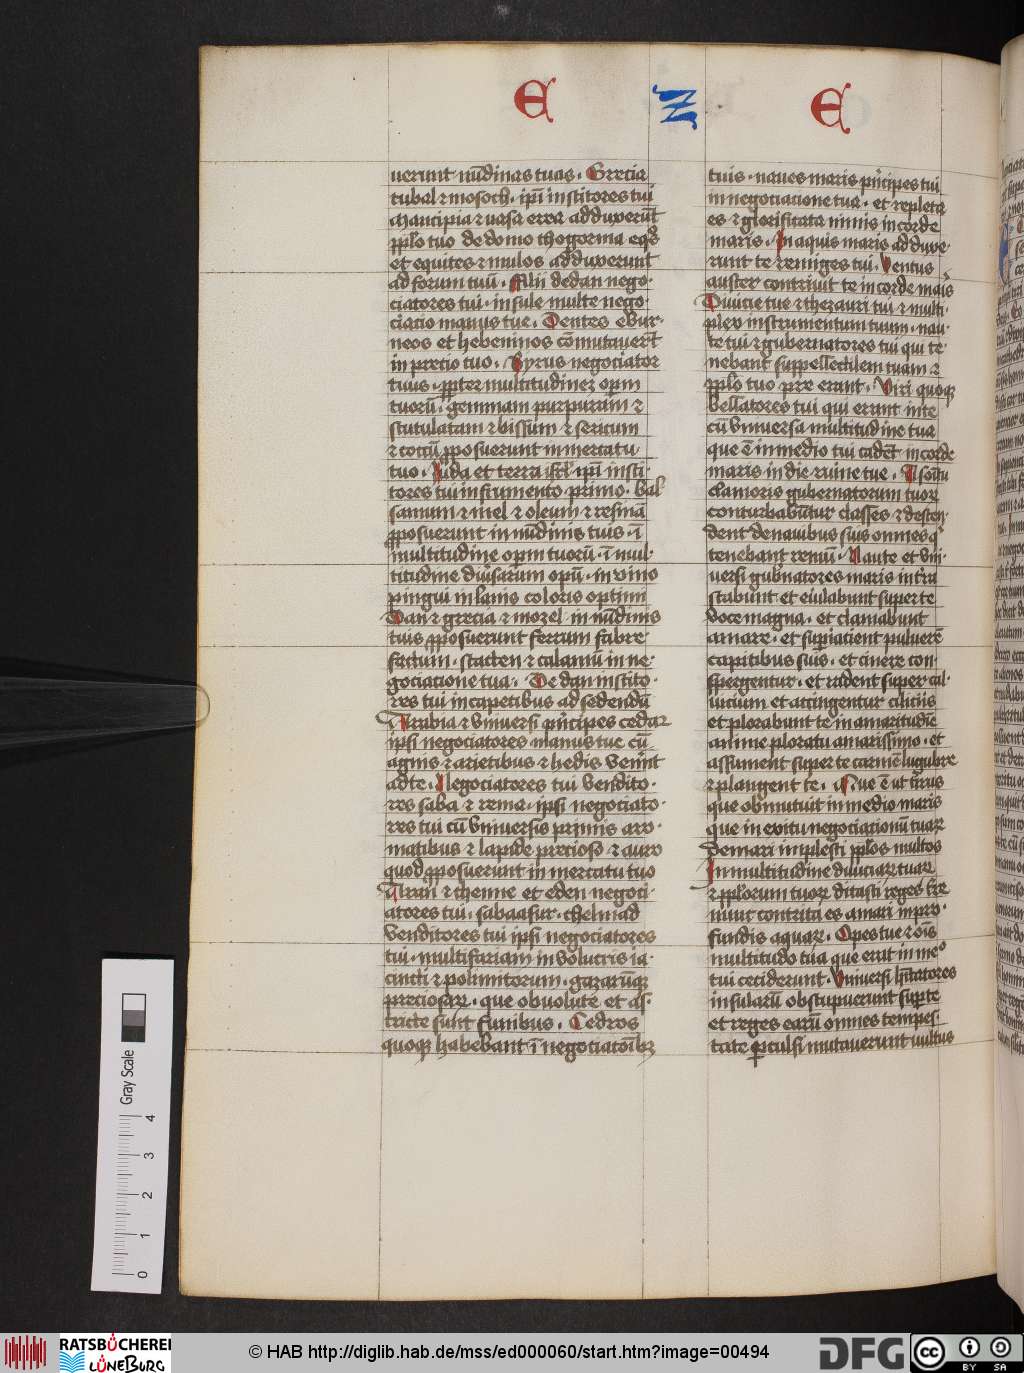 E Z E
uerunt nūdinas tuas. Grecia
tubal ⁊ mosoch. ip̄i institores tui
mancipia ⁊ uasa erea adduxerūt
pp̄lo tuo de domo thogorma eqͦs
et equites ⁊ mulos adduxerunt
ad forum tuū. Filii dedan nego
ciatores tui. insule multe nego
ciacio manus tue. Dentes ebur
neos et hebeninos cōmutauer̄t
in precio tuo. Syrus negociator
tuus. ꝓpter multitudinez op̄m
tuorū. gemmam purpuram ⁊
scutulatam ⁊ bissum ⁊ sericum
⁊ coccū ꝓposuerunt in mercatu
tuo. Iuda et terra isr̄l ip̄i insti
tores tui in frumento primo. bal
samum ⁊ mel ⁊ oleum ⁊ resinā
ꝓposuerunt in nūdinis tuis. ī
multitudine op̄m tuorū. ī mul
titudine diūsarum opū. in vino
pingui in lanis coloris optimi
Dan ⁊ grecia ⁊ mozel in nūdinis
tuis ꝓposuerunt ferrum fabre
factum. stacten ⁊ calamū in ne
gociatione tua. Dedan instito
res tui in tapetibus ad sedendū
Arabia ⁊ vniuersi p̄ncipes cedar
ipsi negociatores manus tue cū
agnis ⁊ arietibus ⁊ hedis venīt
ad te. Negociatores tui vendito
res saba ⁊ rema. ipsi negociato
res tui cū vniuersis primis aro
matibus ⁊ lapide precioso ⁊ auro
quod ꝓposuerunt in mercatu tuo
Aran ⁊ chenne et eden negoci
atores tui. saba assur. chelmad
venditores tui ipsi negociatores
tui. multifariam inuolucris ia
cincti ⁊ polimitorum. gazarūqꝫ
preciosaꝝ. que obuolute et as
tricte sunt funibus. Cedros
quoqꝫ habebant ī negociatōibꝫ
tuis. naues maris p̄ncipes tui
in negociacione tua. et repleta
es ⁊ glorificata nimis in corde
maris. In aquis maris adduxe
runt te remiges tui. Ventus
auster contriuit te in corde mar̄s
Diuicie tue ⁊ thezauri tui ⁊ multi
plex instrumentum tuum. nau
te tui ⁊ gubernatores tui qui te
nebant suppellectilem tuam ⁊
pp̄lo tuo pre erant. Viri quoqꝫ
bellatores tui qui erant in te
cū vniuersa multitudine tua
que ē in medio tui cadēt in corde
maris in die ruine tue. A sonitu
clamoris gubernatorum tuoꝝ
conturbabūtur classes ⁊ descen
dent de nauibus suis omnes qͥ
tenebant remū. Naute et vni
uersi gub̄natores maris in t̄ra
stabunt et eiulabunt super te
voce magna. et clamabunt
amare. et sup̄iacient puluerē
capitibus suis. et cinere con
spergentur. et radent super cal
uicium et accingentur ciliciis
et plorabunt te in amaritudīe
anime ploratu amarissimo. et
assument super te carmē lugubre
⁊ plangent te. Que ē ut tirus
que obmutuit in medio maris
que in exitu negociacionū tuaꝝ
de mari implesti pp̄los multos
In multitudine diuiciaꝝ tuaꝝ
⁊ pp̄lorum tuoꝝ ditasti reges t̄re
nunc contrita es a mari in pro
fundis aquaꝝ. Opes tue ⁊ oīs
multitudo tua que erat in meͦ
tui ceciderunt. Vniuersi hītatores
insularū obstupuerunt sup̄ te
et reges earū omnes tempes
tate ꝑculsi mutauerunt uultus
Gray Scale
0 1 2 3 4
RATSBÜCHEREI LÜNEBURG
© HAB http://diglib.hab.de/mss/ed000060/start.htm?image=00494
DFG
cc BY SA